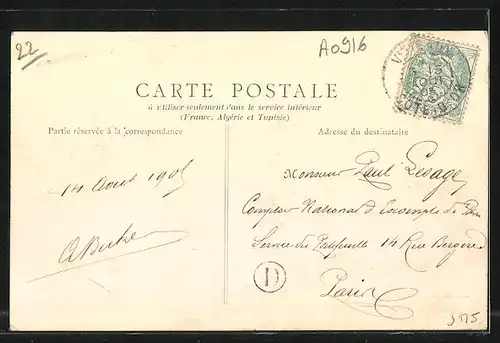 22
A0916
CARTE POSTALE
à utiliser seulement dans le service intérieur
(France, Algérie et Tunisie)
Partie réservée à la correspondance
Adresse du destinataire
14 Aout 1905
Monsieur Paul Lesage
Comptoir National d'Escompte de Paris
Service du Portefeuille 14 Rue Bergère
Paris
D
COTE-D'OR